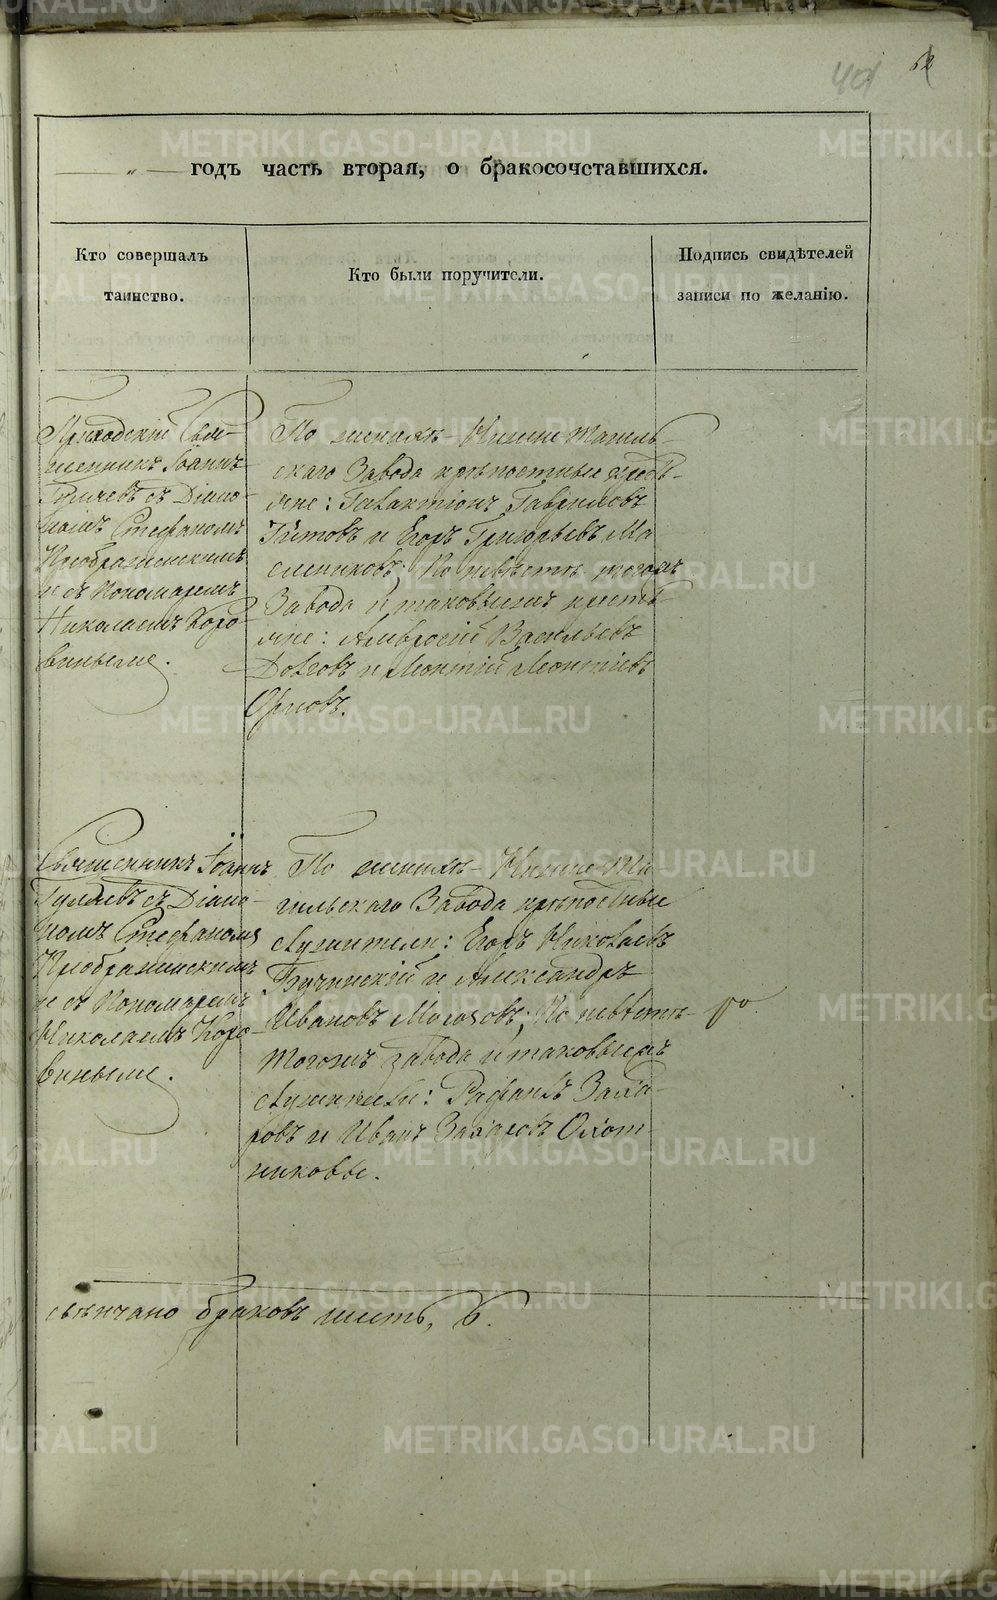 — „ — годъ часть вторая, о бракосочетавшихся.
Кто совершалъ
таинство.
Кто были поручители.
Подпись свидѣтелей
записи по желанію.
Приходскій Свя-
щенникъ Іоаннъ
Гуляевъ съ Діако-
номъ Стефаномъ
Преображенскимъ
и съ Пономаремъ
Николаемъ Коро-
винымъ.
По женихѣ - Нижне Тагиль-
скаго Завода крѣпостные крестья-
яне: Галактіонъ Гавриловъ
Титовъ и Егоръ Григорьевъ Ма
слениковъ; По невѣстѣ тогожъ
Завода и таковыежъ кресть-
яне: Амвросій Васильевъ
Долговъ и Леонтій Леонтіевъ
Орловъ.
Священникъ Іоаннъ
Гуляевъ съ Діако-
номъ Стефаномъ
Преображенскимъ
и съ Пономаремъ
Николаемъ Коро-
винымъ.
По женихѣ - Нижне Та
гильскаго Завода крѣпостные
служители: Егоръ Николаевъ
и Александръ
Ивановъ; По невѣстѣ -
тогожъ завода и таковыежъ
служители: Заха-
ровъ и Иванъ Захаровъ Охот-
никовы.
свѣнчано браковъ шесть, 6.
METRIKI.GASO-URAL.RU